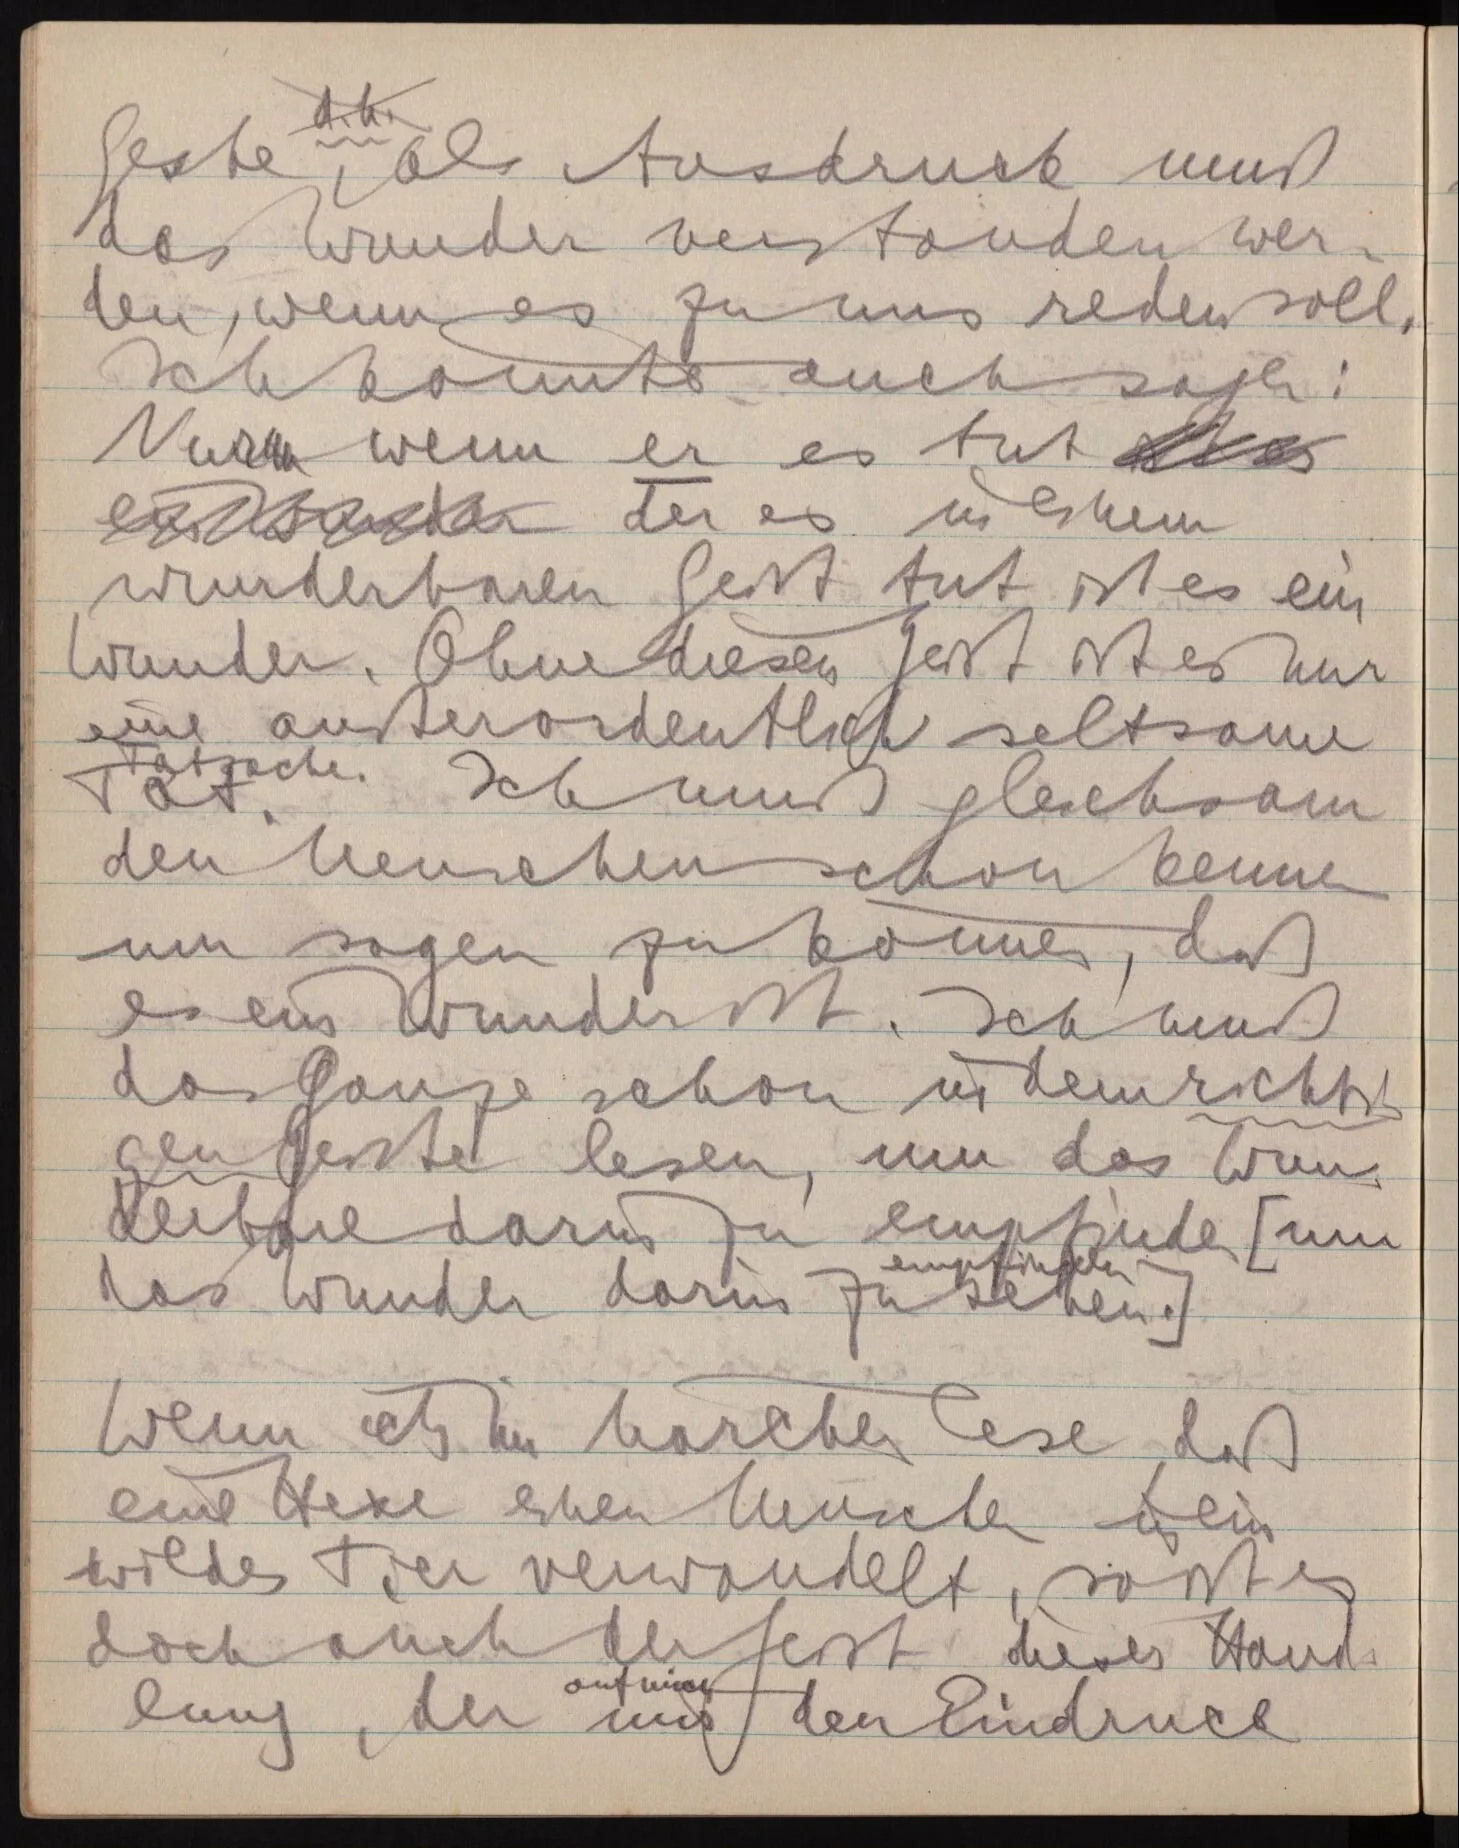 d.h.
Geste, als Ausdruck muß
das Wunder verstanden wer-
den, wenn es zu uns reden soll.
Ich könnte auch sagen:
Nur wenn er es tut
der es in einem
wunderbaren Geist tut ist es ein
Wunder. Ohne diesen Geist ist es nur
eine außerordentlich seltsame
Tatsache.
Tat. Ich muß gleichsam
den Menschen schon kennen
um sagen zu können, daß
es ein Wunder ist. Ich muß
das Ganze schon in dem richti-
gen Geiste lesen, um das Wun-
derbare darin zu empfinden [um
empfinden
das Wunder darin zu sehen.]
Wenn ich im Märchen lese, daß
eine Hexe einen Menschen in ein
wildes Tier verwandelt, so ist es
doch auch der Geist dieser Hand-
auf mich
lung, der mir den Eindruck